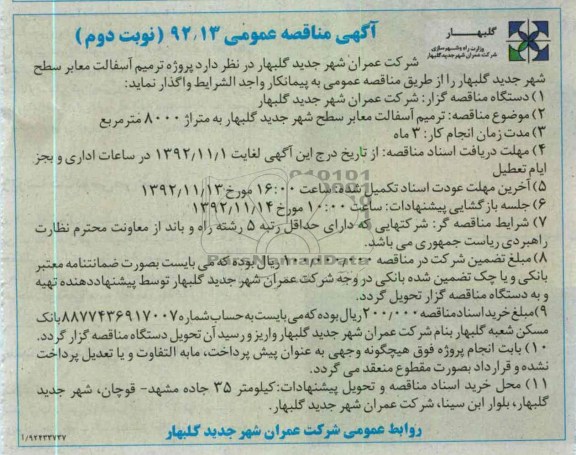 گلبهار
وزارت راه و شهرسازی
شرکت عمران شهر جدید گلبهار
آگهی مناقصه عمومی ۹۲٫۱۳ (نوبت دوم)
شرکت عمران شهر جدید گلبهار در نظر دارد پروژه ترمیم آسفالت معابر سطح
شهر جدید گلبهار را از طریق مناقصه عمومی به پیمانکار واجد الشرایط واگذار نماید:
۱) دستگاه مناقصه گزار: شرکت عمران شهر جدید گلبهار
۲) موضوع مناقصه: ترمیم آسفالت معابر سطح شهر جدید گلبهار به متراژ ۸۰۰۰ مترمربع
۳) مدت زمان انجام کار: ۳ ماه
۴) مهلت دریافت اسناد مناقصه: از تاریخ درج این آگهی لغایت ۱۳۹۲٫۱۱٫۱ در ساعات اداری و بجز
ایام تعطیل
۵) آخرین مهلت عودت اسناد تکمیل شده: ساعت ۱۶:۰۰ مورخ ۱۳۹۲٫۱۱٫۱۳
۶) جلسه بازگشایی پیشنهادات: ساعت ۱۰:۰۰ مورخ ۱۳۹۲٫۱۱٫۱۴
۷) شرایط مناقصه گر: شرکتهایی که دارای حداقل رتبه ۵ رشته راه و باند از معاونت محترم نظارت
راهبردی ریاست جمهوری می باشد.
۸) مبلغ تضمین شرکت در مناقصه ریال بوده که می بایست بصورت ضمانتنامه معتبر
بانکی و یا چک تضمین شده بانکی در وجه شرکت عمران شهر جدید گلبهار توسط پیشنهاددهنده تهیه
و به دستگاه مناقصه گزار تحویل گردد.
۹) مبلغ خرید اسناد مناقصه ۲۰۰٫۰۰۰ ریال بوده که می بایست به حساب شماره ۸۸۷۷۴۳۶۹۱۷۰۰۷ بانک
مسکن شعبه گلبهار بنام شرکت عمران شهر جدید گلبهار واریز و رسید آن تحویل دستگاه مناقصه گزار گردد.
۱۰) بابت انجام پروژه فوق هیچگونه وجهی به عنوان پیش پرداخت، مابه التفاوت و یا تعدیل پرداخت
نشده و قرارداد بصورت مقطوع منعقد می گردد.
۱۱) محل خرید اسناد مناقصه و تحویل پیشنهادات: کیلومتر ۳۵ جاده مشهد- قوچان، شهر جدید
گلبهار، بلوار ابن سینا، شرکت عمران شهر جدید گلبهار.
روابط عمومی شرکت عمران شهر جدید گلبهار